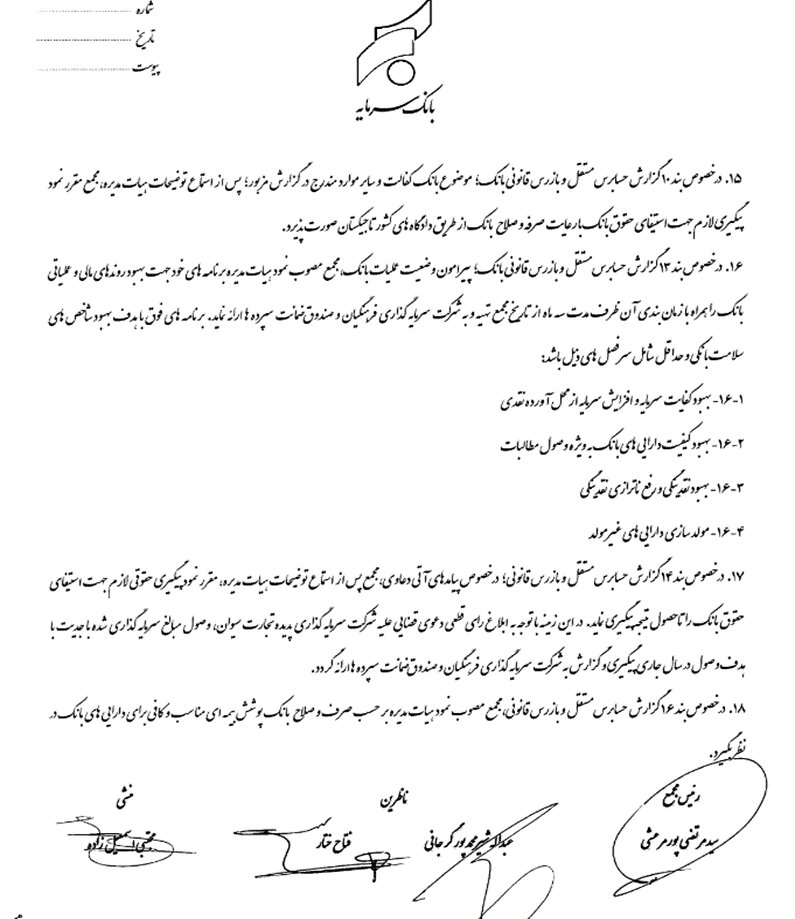 شماره ........................
تاریخ ........................
پیوست ........................
بانک سرمایه
۱۵. درخصوص بند ۱۰ گزارش حسابرس مستقل و بازرس قانونی بانک؛ موضوع بانک کفالت و سایر موارد مندرج در گزارش مزبور؛ پس از استماع توضیحات هیات مدیره، مجمع مقرر نمود
پیگیری لازم جهت استیفای حقوق بانک با رعایت صرفه و صلاح بانک از طریق دادگاه های کشور تاجیکستان صورت پذیرد.
۱۶. درخصوص بند ۱۳ گزارش حسابرس مستقل و بازرس قانونی بانک؛ پیرامون وضعیت عملیات بانک، مجمع مصوب نمود هیات مدیره برنامه های خود جهت بهبود روندهای مالی و عملیاتی
بانک را همراه با زمان بندی آن ظرف مدت سه ماه از تاریخ مجمع تهیه و به شرکت سرمایه گذاری فرهنگیان و صندوق ضمانت سپرده ها ارائه نماید. برنامه های فوق با هدف بهبود شاخص های
سلامت بانکی و حداقل شامل سرفصل های ذیل باشد:
۱-۱۶- بهبود کفایت سرمایه و افزایش سرمایه از محل آورده نقدی
۲-۱۶- بهبود کیفیت دارایی های بانک به ویژه وصول مطالبات
۳-۱۶- بهبود نقدینگی و رفع ناترازی نقدینگی
۴-۱۶- مولد سازی دارایی های غیرمولد
۱۷. درخصوص بند ۱۴ گزارش حسابرس مستقل و بازرس قانونی؛ درخصوص پیامدهای آتی دعاوی، مجمع پس از استماع توضیحات هیات مدیره، مقرر نمود پیگیری حقوقی لازم جهت استیفای
حقوق بانک را تا حصول نتیجه پیگیری نماید. در این زمینه با توجه به ابلاغ رای قطعی دعوی قضایی علیه شرکت سرمایه گذاری پدیده تجارت سیوان، وصول مبالغ سرمایه گذاری شده با جدیت با
هدف وصول در سال جاری پیگیری و گزارش به شرکت سرمایه گذاری فرهنگیان و صندوق ضمانت سپرده ها ارائه گردد.
۱۸. درخصوص بند ۱۶ گزارش حسابرس مستقل و بازرس قانونی، مجمع مصوب نمود هیات مدیره بر حسب صرف و صلاح بانک پوشش بیمه ای مناسب و کافی برای دارایی های بانک در
نظر بگیرد.
رئیس مجمع ناظرین منشی
سیدمرتضی پورمرعشی عبداله شیرمحمدپور گرجانی فتاح ختار مجتبی اسمعیل زاده